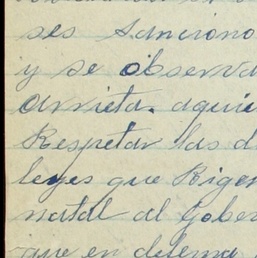 ses sanciono
y se observa
arrieta. aquie
Respetar las d
leyes que Rigen
natal al Gober
que en defensa